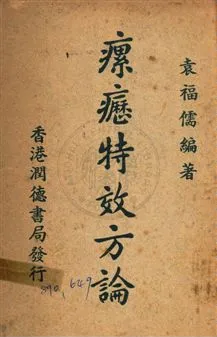 袁福儒編著
瘰癧特效方論
香港潤德書局發行
890,649